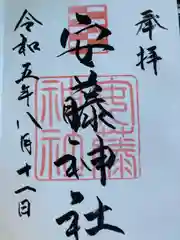 奉拝
安藤神社
令和五年八月十一日
安藤神社